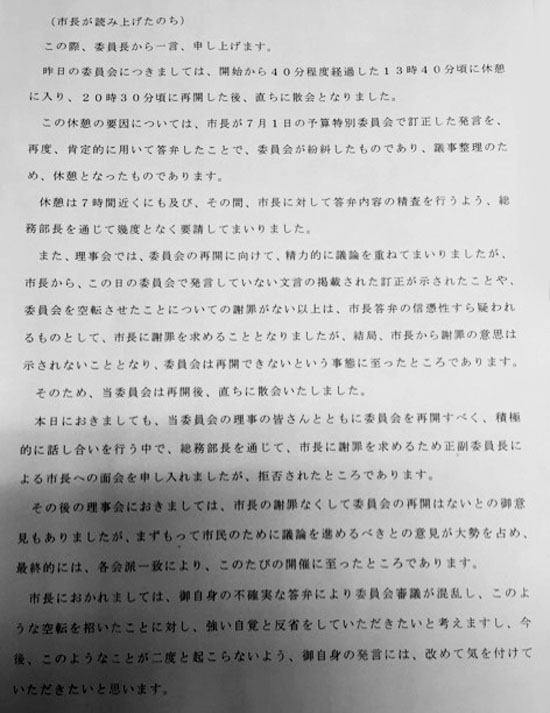 （市長が読み上げたのち）
この際、委員長から一言、申し上げます。
昨日の委員会につきましては、開始から４０分程度経過した１３時４０分頃に休憩
に入り、２０時３０分頃に再開した後、直ちに散会となりました。
この休憩の要因については、市長が７月１日の予算特別委員会で訂正した発言を、
再度、肯定的に用いて答弁したことで、委員会が紛糾したものであり、議事整理のた
め、休憩となったものであります。
休憩は７時間近くにも及び、その間、市長に対して答弁内容の精査を行うよう、総
務部長を通じて幾度となく要請してまいりました。
また、理事会では、委員会の再開に向けて、精力的に議論を重ねてまいりましたが、
市長から、この日の委員会で発言していない文言の掲載された訂正が示されたことや、
委員会を空転させたことについての謝罪がない以上は、市長答弁の信憑性すら疑われ
るものとして、市長に謝罪を求めることとなりましたが、結局、市長から謝罪の意思は
示されないこととなり、委員会は再開できないという事態に至ったところであります。
そのため、当委員会は再開後、直ちに散会いたしました。
本日におきましても、当委員会の理事の皆さんとともに委員会を再開すべく、積極
的に話し合いを行う中で、総務部長を通じて、市長に謝罪を求めるため正副委員長に
よる市長への面会を申し入れましたが、拒否されたところであります。
その後の理事会におきましては、市長の謝罪なくして委員会の再開はないとの御意
見もありましたが、まずもって市民のために議論を進めるべきとの意見が大勢を占め、
最終的には、各会派一致により、このたびの開催に至ったところであります。
市長におかれましては、御自身の不確実な答弁により委員会審議が混乱し、このよ
うな空転を招いたことに対し、強い自覚と反省をしていただきたいと考えますし、今
後、このようなことが二度と起こらないよう、御自身の発言には、改めて気を付けて
いただきたいと思います。